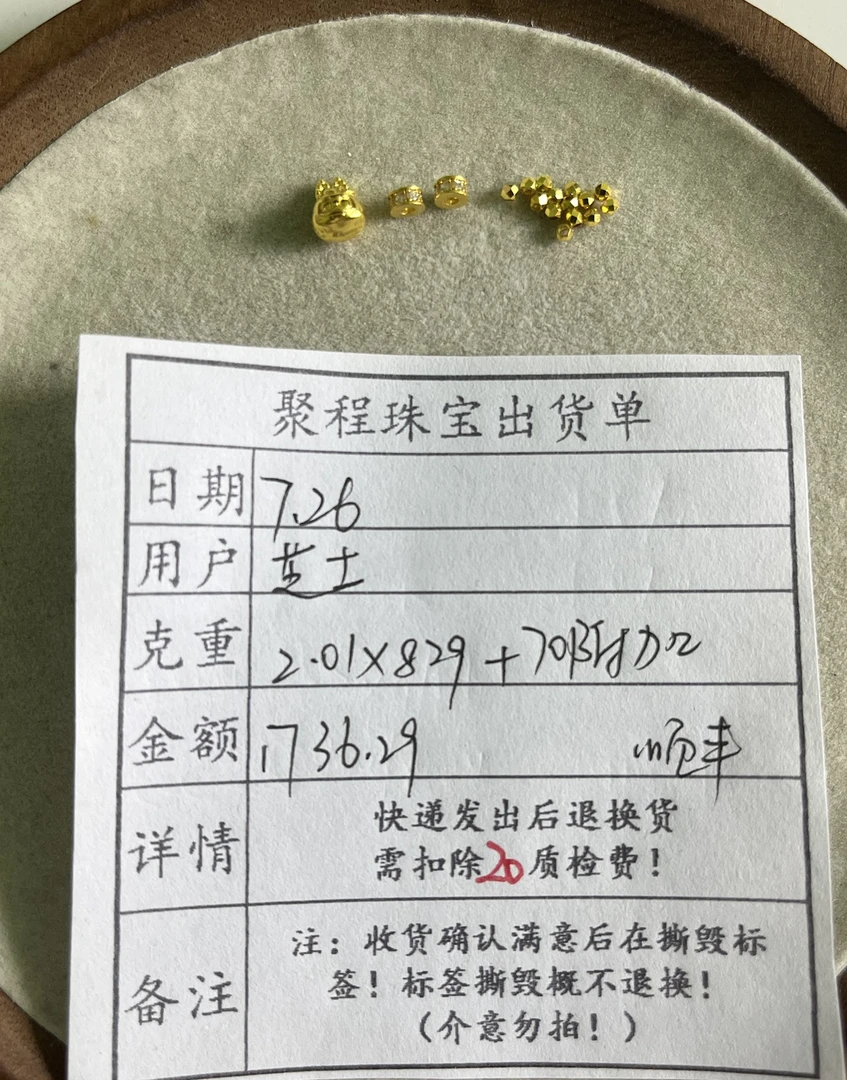 聚程珠宝出货单
日期 7.26
用户 芝士
克重 2.01×829+70附加
金额 1736.29 顺丰
详情 快递发出后退换货
需扣除20质检费!
备注 注:收货确认满意后在撕毁标
签!标签撕毁概不退换!
(介意勿拍!)